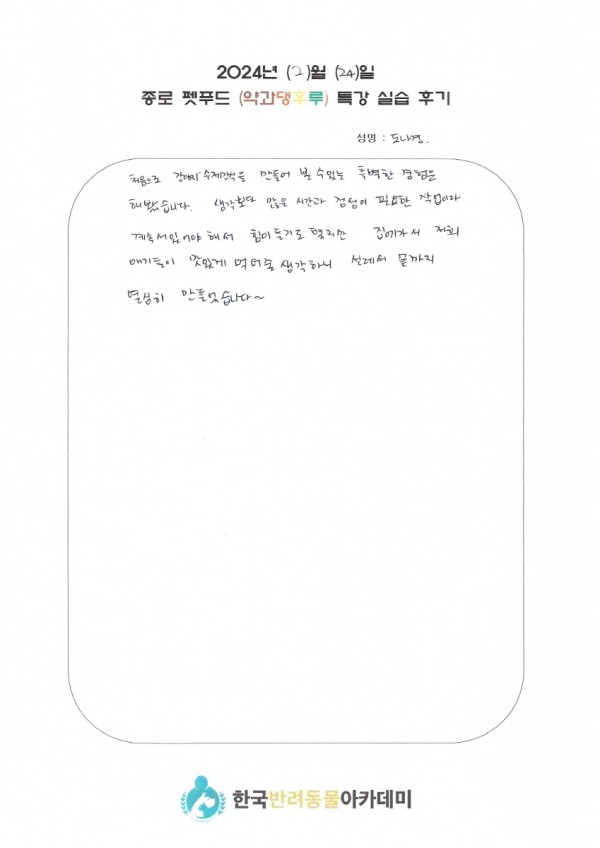 2024년 (2)월 (24)일
종로 펫푸드 (약과댕후루) 특강 실습 후기
성명 : 도나경.
처음으로 강아지 수제간식을 만들어 볼 수 있는 특별한 경험을
해봤습니다. 생각보다 많은 시간과 정성이 필요한 작업이라
계속 서있어야 해서 힘이 들기도 했지만 집에가서 저희
애기들이 맛있게 먹어줄 생각하니 설레서 끝까지
열심히 만들었습니다~
한국반려동물아카데미